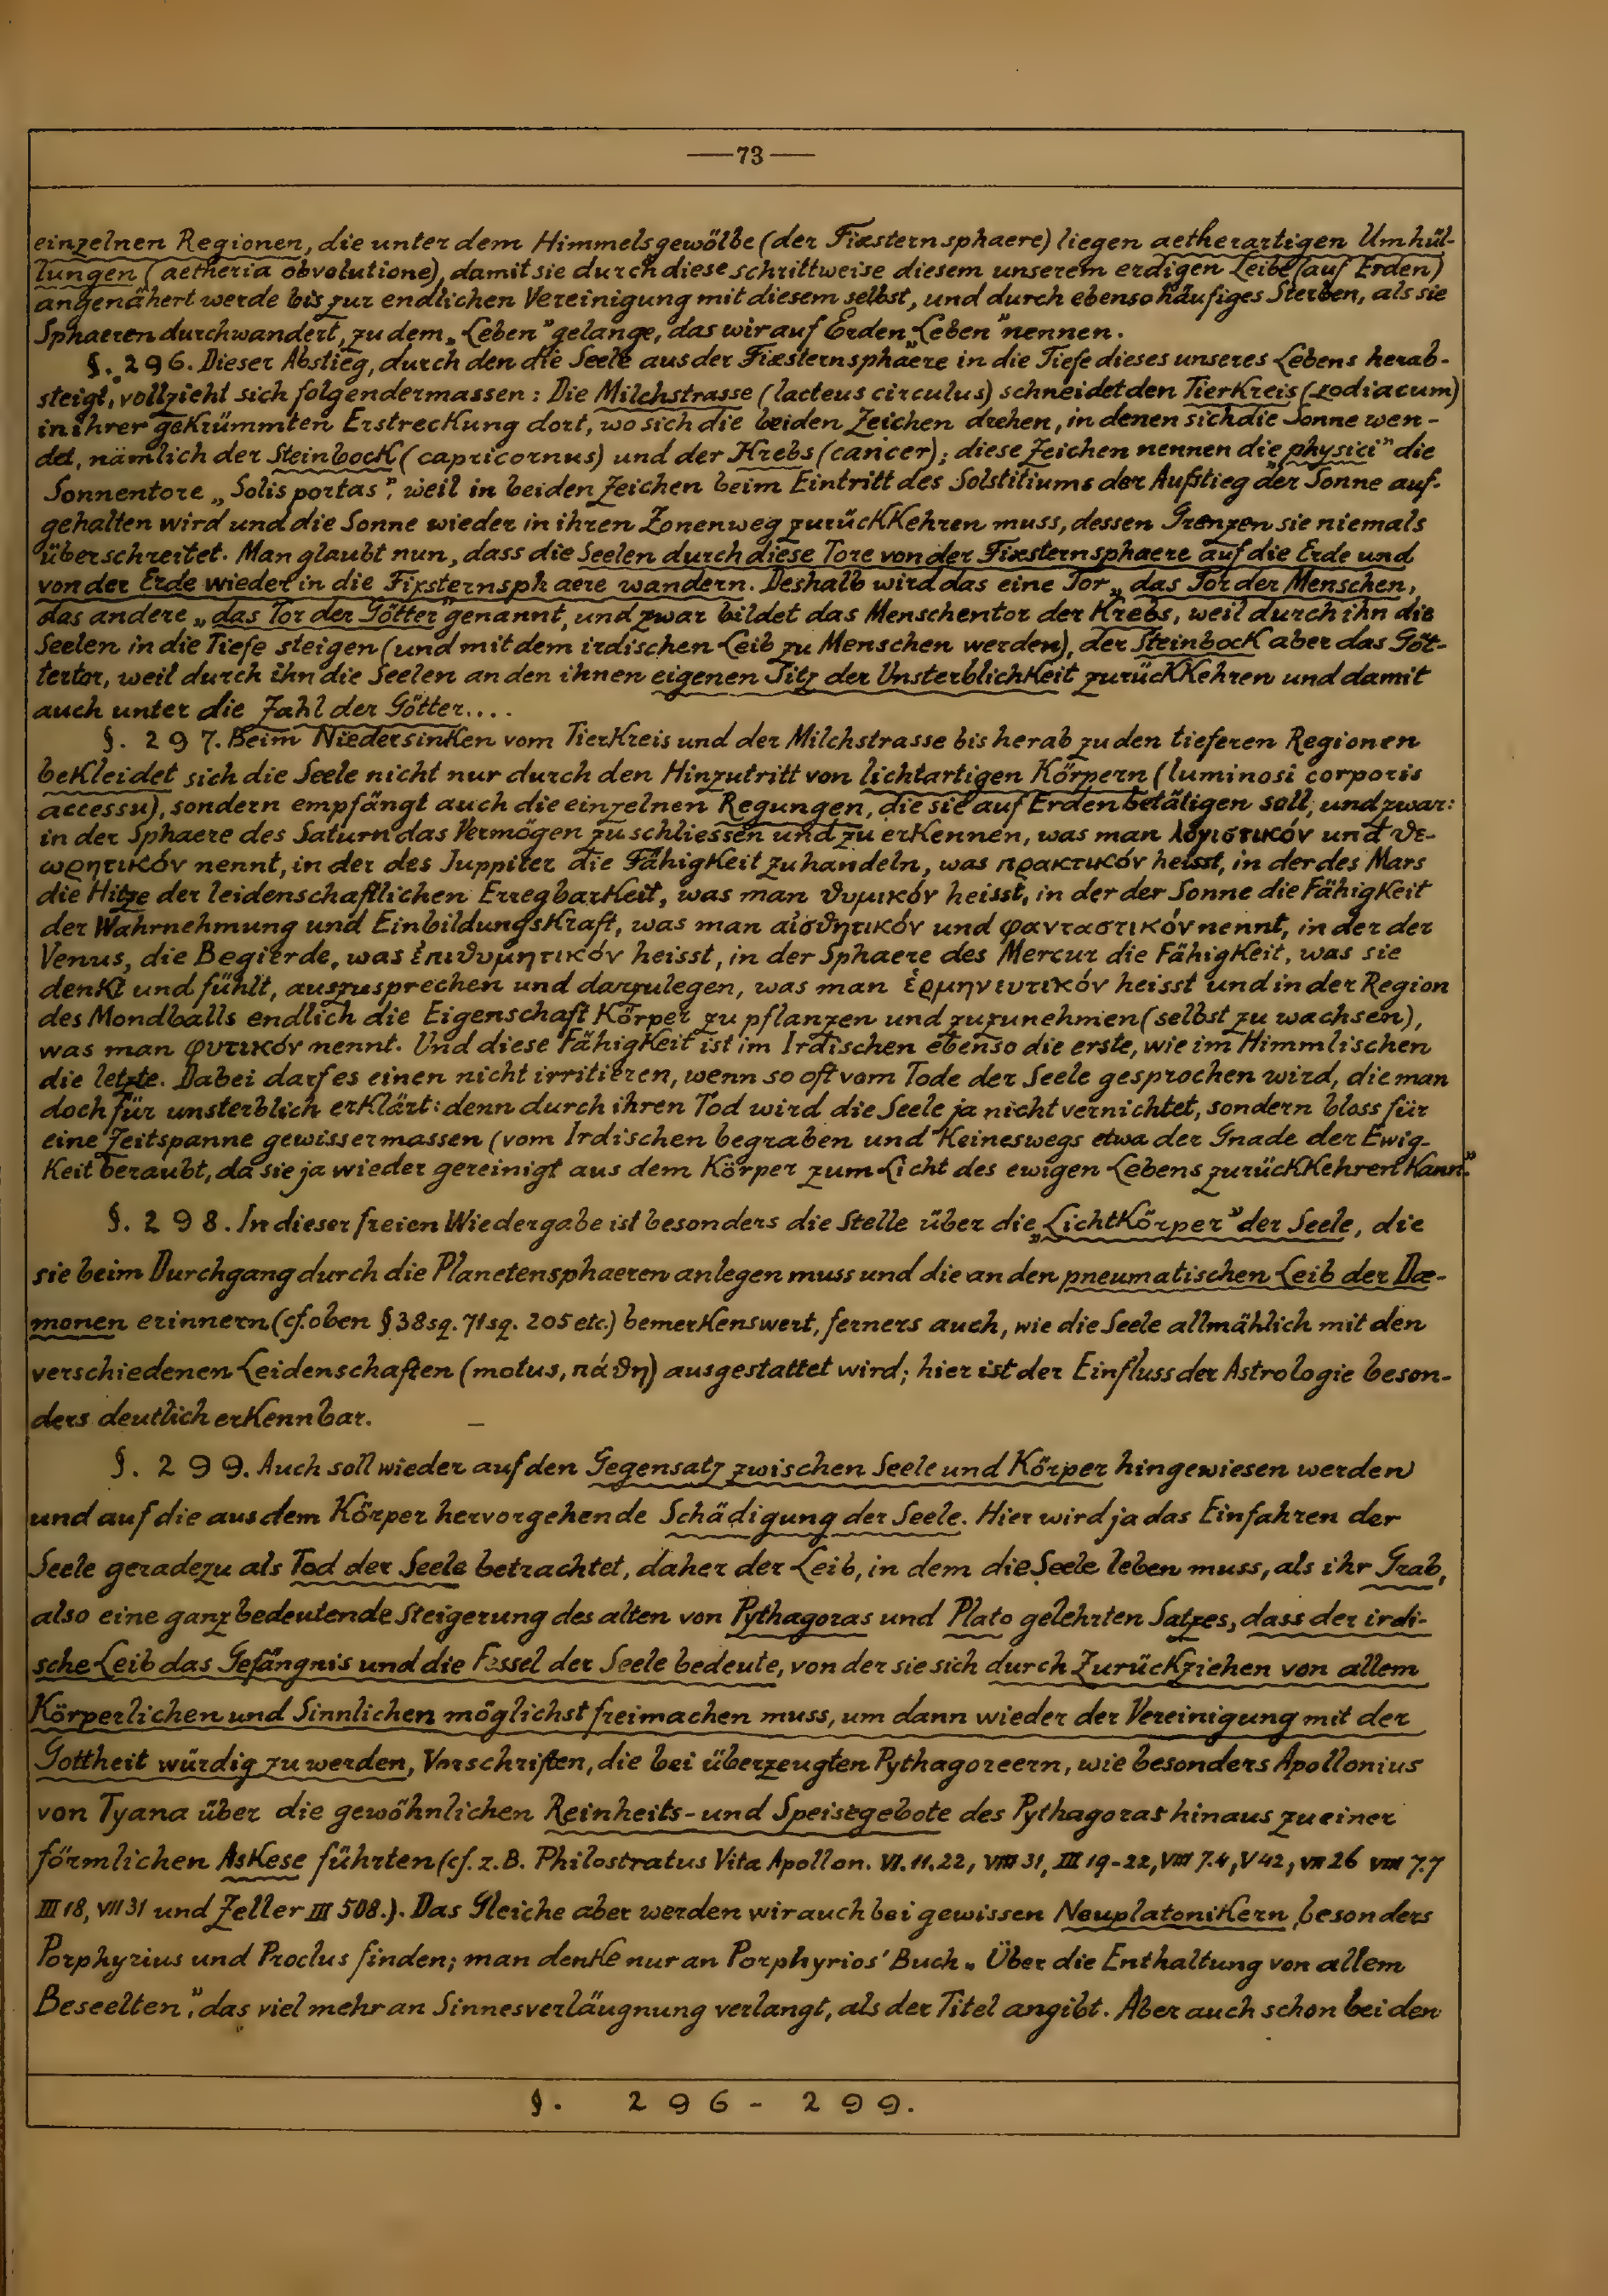 —73—
einzelnen Regionen, die unter dem Himmelsgewölbe (der Fixsternsphaere) liegen aetherartigen Umhül-
lungen (aetheria obvolutione), damit sie durch diese schrittweise diesem unserem erdigen Leibe (auf Erden)
angenähert werde bis zur endlichen Vereinigung mit diesem selbst, und durch ebenso häufiges Sterben, als sie
Sphaeren durchwandert, zu dem „Leben" gelange, das wir auf Erden „Leben" nennen.
§. 296. Dieser Abstieg, durch den die Seele aus der Fixsternsphaere in die Tiefe dieses unseres Lebens herab-
steigt, vollzieht sich folgendermassen: Die Milchstrasse (lacteus circulus) schneidet den Tierkreis (zodiacum)
in ihrer gekrümmten Erstreckung dort, wo sich die beiden Zeichen drehen, in denen sich die Sonne wen-
det, nämlich der Steinbock (capricornus) und der Krebs (cancer); diese Zeichen nennen die „physici" die
Sonnentore „Solis portas", weil in beiden Zeichen beim Eintritt des Solstitiums der Aufstieg der Sonne auf-
gehalten wird und die Sonne wieder in ihren Zonenweg zurückkehren muss, dessen Grenzen sie niemals
überschreitet. Man glaubt nun, dass die Seelen durch diese Tore von der Fixsternsphaere auf die Erde und
von der Erde wieder in die Fixsternsphaere wandern. Deshalb wird das eine Tor „das Tor der Menschen,
das andere „das Tor der Götter" genannt, und zwar bildet das Menschentor der Krebs, weil durch ihn die
Seelen in die Tiefe steigen (und mit dem irdischen Leib zu Menschen werden), der Steinbock aber das Göt-
tertor, weil durch ihn die Seelen an den ihnen eigenen Sitz der Unsterblichkeit zurückkehren und damit
auch unter die Zahl der Götter....
§. 297. Beim Niedersinken vom Tierkreis und der Milchstrasse bis herab zu den tieferen Regionen
bekleidet sich die Seele nicht nur durch den Hinzutritt von lichtartigen Körpern (luminosi corporis
accessu), sondern empfängt auch die einzelnen Regungen, die sie auf Erden betätigen soll, und zwar:
in der Sphaere des Saturn das Vermögen zu schliessen und zu erkennen, was man λογιστικόν und θε-
ωρητικόν nennt, in der des Juppiter die Fähigkeit zu handeln, was πρακτικόν heisst, in der des Mars
die Hitze der leidenschaftlichen Erregbarkeit, was man θυμικόν heisst, in der der Sonne die Fähigkeit
der Wahrnehmung und Einbildungskraft, was man αἰσθητικόν und φανταστικόν nennt, in der der
Venus, die Begierde, was ἐπιθυμητικόν heisst, in der Sphaere des Mercur die Fähigkeit, was sie
denkt und fühlt, auszusprechen und darzulegen, was man ἑρμηνευτικόν heisst und in der Region
des Mondballs endlich die Eigenschaft Körper zu pflanzen und zuzunehmen (selbst zu wachsen),
was man φυτικόν nennt. Und diese Fähigkeit ist im Irdischen ebenso die erste, wie im Himmlischen
die letzte. Dabei darf es einen nicht irritieren, wenn so oft vom Tode der Seele gesprochen wird, die man
doch für unsterblich erklärt: denn durch ihren Tod wird die Seele ja nicht vernichtet, sondern bloss für
eine Zeitspanne gewissermassen (vom Irdischen begraben und keineswegs etwa der Gnade der Ewig-
keit beraubt, da sie ja wieder gereinigt aus dem Körper zum Licht des ewigen Lebens zurückkehren kann."
§. 298. In dieser freien Wiedergabe ist besonders die Stelle über die „Lichtkörper" der Seele, die
sie beim Durchgang durch die Planetensphaeren anlegen muss und die an den pneumatischen Leib der Dae-
monen erinnern (cf. oben § 38 sq. 71 sq. 205 etc.) bemerkenswert, ferners auch, wie die Seele allmählich mit den
verschiedenen Leidenschaften (motus, πάθη) ausgestattet wird; hier ist der Einfluss der Astrologie beson-
ders deutlich erkennbar. —
§. 299. Auch soll wieder auf den Gegensatz zwischen Seele und Körper hingewiesen werden
und auf die aus dem Körper hervorgehende Schädigung der Seele. Hier wird ja das Einfahren der
Seele geradezu als Tod der Seele betrachtet, daher der Leib, in dem die Seele leben muss, als ihr Grab,
also eine ganz bedeutende Steigerung des alten von Pythagoras und Plato gelehrten Satzes, dass der irdi-
sche Leib das Gefängnis und die Fessel der Seele bedeute, von der sie sich durch Zurückziehen von allem
Körperlichen und Sinnlichen möglichst freimachen muss, um dann wieder der Vereinigung mit der
Gottheit würdig zu werden, Vorschriften, die bei überzeugten Pythagoreern, wie besonders Apollonius
von Tyana über die gewöhnlichen Reinheits- und Speisegebote des Pythagoras hinaus zu einer
förmlichen Askese führten (cf. z. B. Philostratus Vita Apollon. VI. 11. 22, VIII 31, III 19-22, VIII 7.4, V 42, VII 26 VIII 7.7
III 18, VII 31 und Zeller III 508.). Das Gleiche aber werden wir auch bei gewissen Neuplatonikern, besonders
Porphyrius und Proclus finden; man denke nur an Porphyrios' Buch „Über die Enthaltung von allem
Beseelten", das viel mehr an Sinnesverläugnung verlangt, als der Titel angibt. Aber auch schon bei den
§. 296- 299.